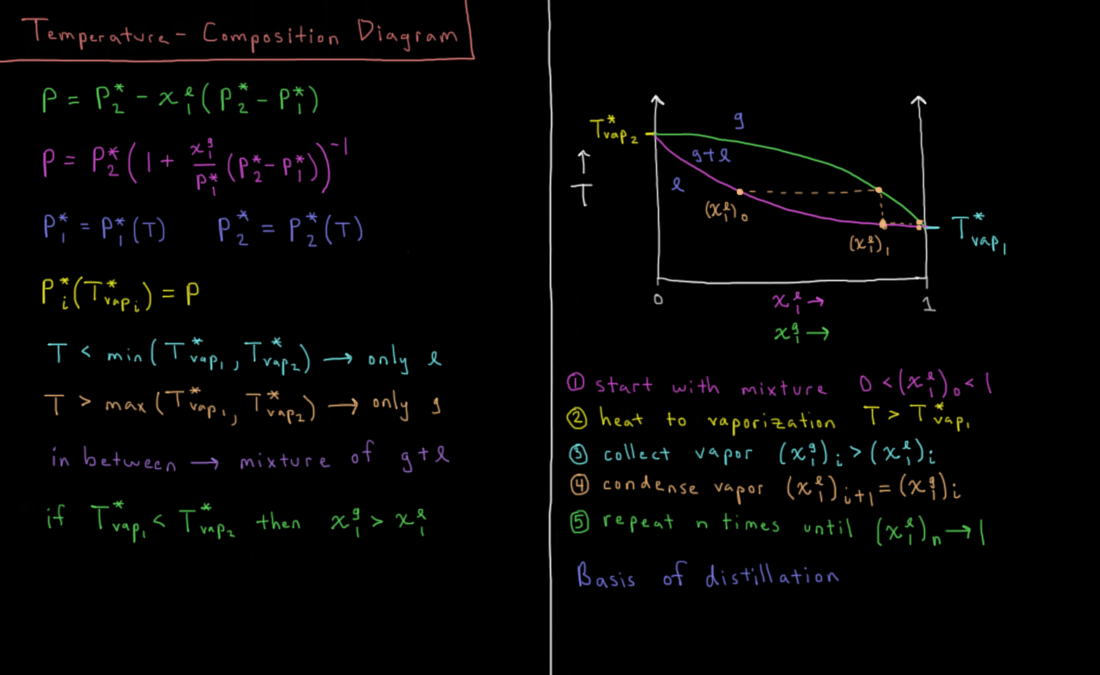 Temperature - Composition Diagram
P = P₂* - x₁ˡ(P₂* - P₁*)
P = P₂*(1 + x₁ᵍ/P₁* (P₂* - P₁*))⁻¹
P₁* = P₁*(T)    P₂* = P₂*(T)
Pᵢ*(T*vapᵢ) = P
T < min(T*vap₁, T*vap₂) → only l
T > max(T*vap₁, T*vap₂) → only g
in between → mixture of g+l
if T*vap₁ < T*vap₂ then x₁ᵍ > x₁ˡ
T*vap₂
g
g+l
l
↑
T
(x₁ˡ)₀
(x₁ˡ)₁
T*vap₁
0
1
x₁ˡ →
x₁ᵍ →
① start with mixture 0 < (x₁ˡ)₀ < 1
② heat to vaporization T > T*vap₁
③ collect vapor (x₁ᵍ)ᵢ > (x₁ˡ)ᵢ
④ condense vapor (x₁ˡ)ᵢ₊₁ = (x₁ᵍ)ᵢ
⑤ repeat n times until (x₁ˡ)ₙ → 1
Basis of distillation